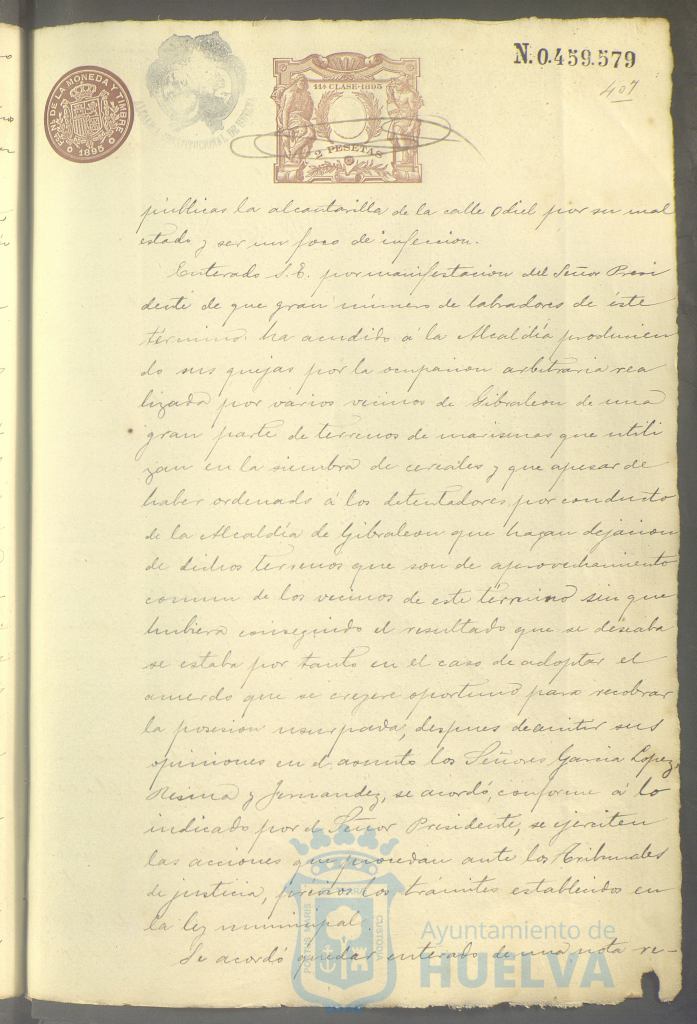 N. 0.459.579
407
FCA. NAL. DE LA MONEDA Y TIMBRE
1895
11ª CLASE-1895
2 PESETAS
públicas la alcantarilla de la calle Odiel por su mal
estado y ser un foco de infección.
Enterado S.E. por manifestacion del Señor Presi
dente de que gran número de labradores de éste
término ha acudido á la Alcaldía producien
do sus quejas por la ocupacion arbitraria rea
lizada por varios vecinos de Gibraleon de una
gran parte de terrenos de marismas que utili
zan en la siembra de cereales y que apesar de
haber ordenado á los detentadores por conducto
de la Alcaldía de Gibraleon que hagan dejacion
de dichos terrenos que son de aprovechamiento
comun de los vecinos de este término sin que
hubiera conseguido el resultado que se deseaba
se estaba por tanto en el caso de adoptar el
acuerdo que se creyere oportuno para recobrar
la posesion usurpada, despues de emitir sus
opiniones en el asunto los Señores Garcia Lopez,
Resina y Fernandez, se acordó, conforme á lo
indicado por el Señor Presidente, se ejerciten
las acciones que procedan ante los Tribunales
de justicia, previos los trámites establecidos en
la ley municipal.
Se acordó quedar enterado de una nota re-
PORTUS MARIS
CUSTODIA
Ayuntamiento de
HUELVA